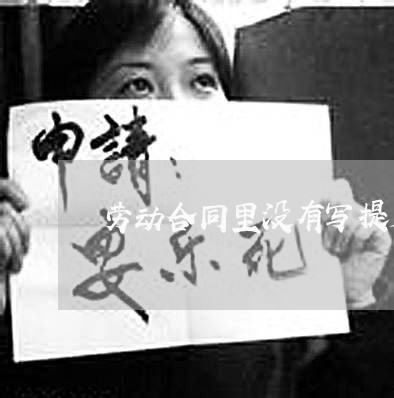 申請：
劳动合同里没有写提
安乐死